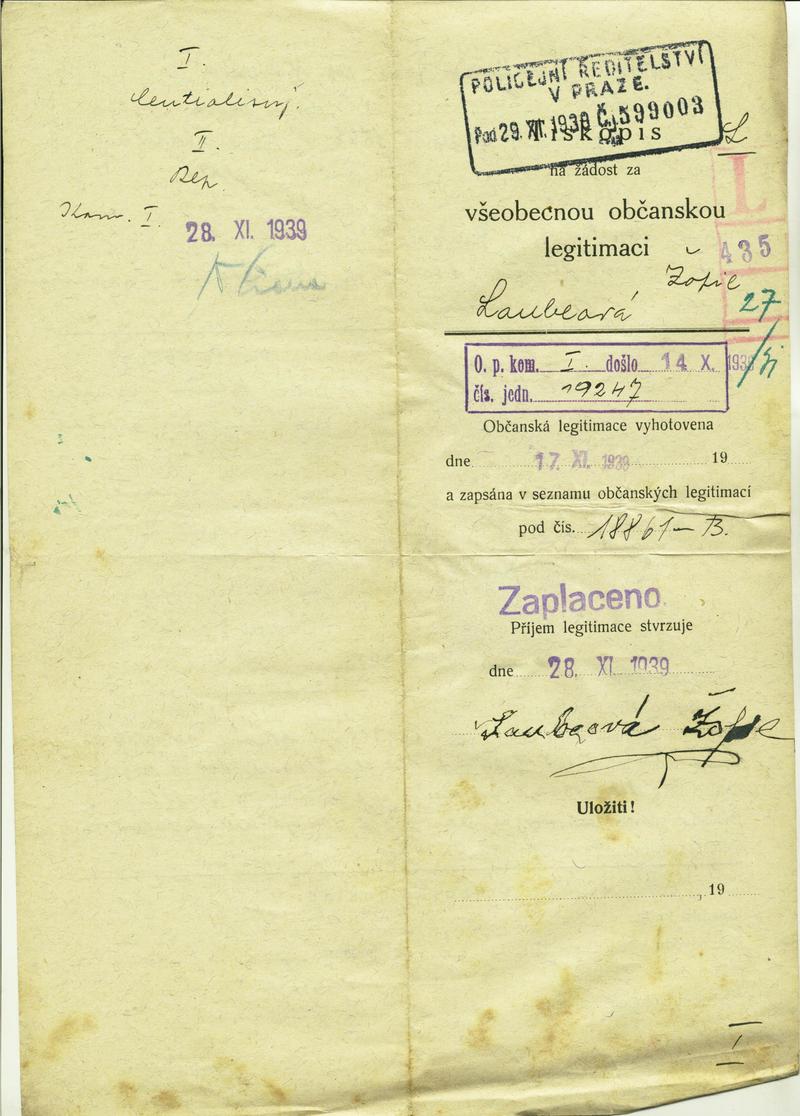 I.
II.
Kom. I.
28. XI. 1939
POLICEJNÍ ŘEDITELSTVÍ
V PRAZE.
Pod 29. XI. 1939 Č.j. 599003
Tiskopis
L
na žádost za
L
všeobecnou občanskou
legitimaci
435
Žofie
27
O. p. kom. I. došlo 14 X. 1939
čís. jedn. 19247
Občanská legitimace vyhotovena
dne 17. XI. 1939 19
a zapsána v seznamu občanských legitimací
pod čís. 18861 – B.
Zaplaceno
Příjem legitimace stvrzuje
dne 28. XI 1939
Žofie
Uložiti!
, 19
I